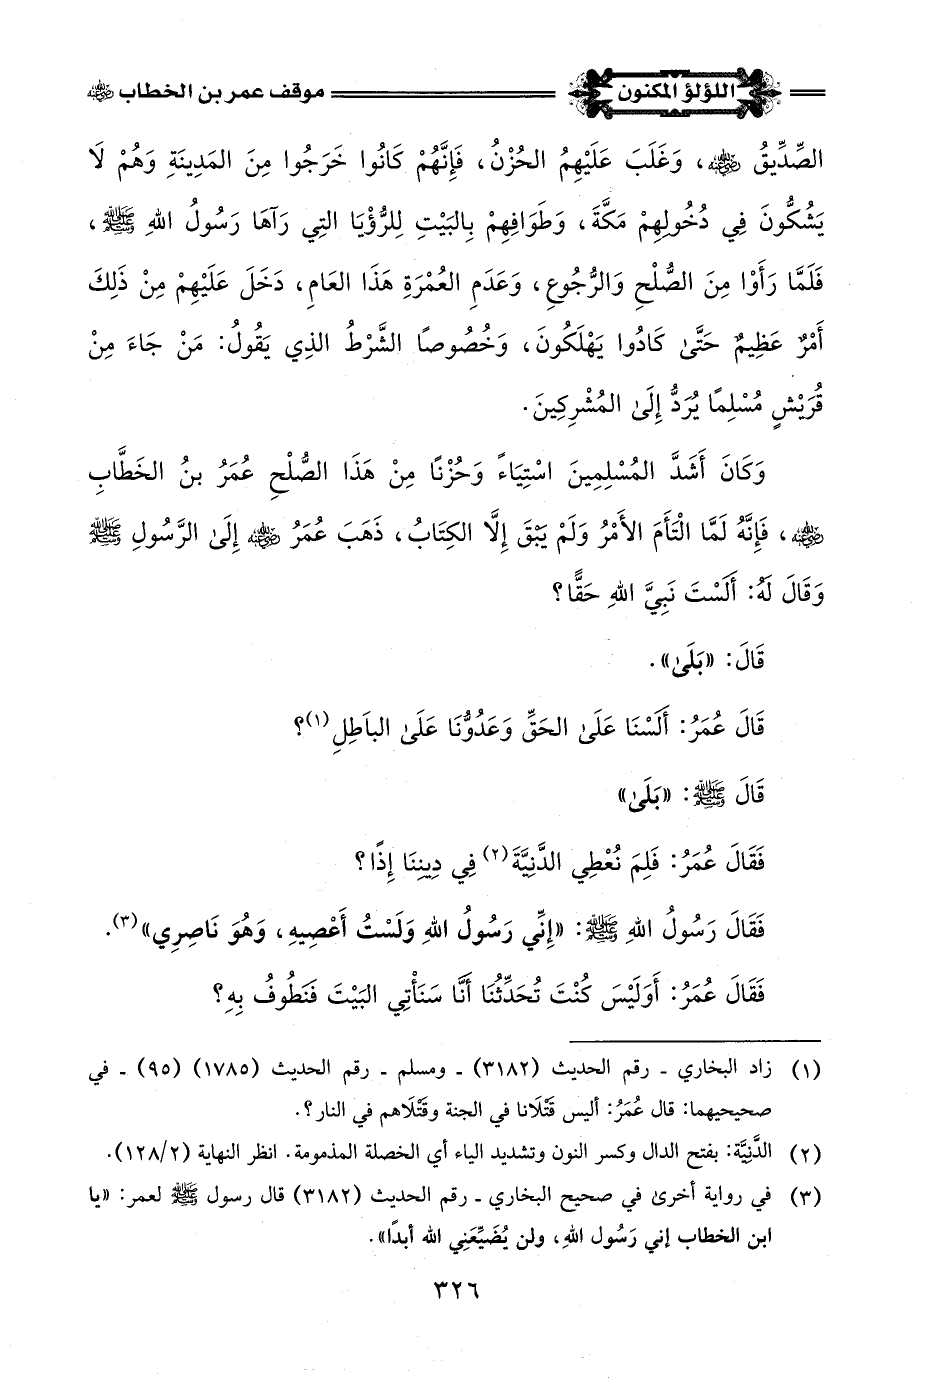 اللؤلؤ المكنون موقف عمر بن الخطاب ﵁
الصِّدِّيقُ ﵁، وَغَلَبَ عَلَيْهِمُ الحُزْنُ، فَإِنَّهُمْ كَانُوا خَرَجُوا مِنَ المَدِينَةِ وَهُمْ لَا
يَشُكُّونَ فِي دُخُولِهِمْ مَكَّةَ، وَطَوَافِهِمْ بِالبَيْتِ لِلرُّؤْيَا التِي رَآهَا رَسُولُ اللهِ ﷺ،
فَلَمَّا رَأَوْا مِنَ الصُّلْحِ وَالرُّجُوعِ، وَعَدَمِ العُمْرَةِ هَذَا العَامِ، دَخَلَ عَلَيْهِمْ مِنْ ذَلِكَ
أَمْرٌ عَظِيمٌ حَتَّىٰ كَادُوا يَهْلَكُونَ، وَخُصُوصًا الشَّرْطُ الذِي يَقُولُ: مَنْ جَاءَ مِنْ
قُرَيْشٍ مُسْلِمًا يُرَدُّ إِلَىٰ المُشْرِكِينَ.
وَكَانَ أَشَدَّ المُسْلِمِينَ اسْتِيَاءً وَحُزْنًا مِنْ هَذَا الصُّلْحِ عُمَرُ بنُ الخَطَّابِ
﵁، فَإِنَّهُ لَمَّا الْتَأَمَ الأَمْرُ وَلَمْ يَبْقَ إِلَّا الكِتَابُ، ذَهَبَ عُمَرُ ﵁ إِلَىٰ الرَّسُولِ ﷺ
وَقَالَ لَهُ: أَلَسْتَ نَبِيَّ اللهِ حَقًّا؟
قَالَ: «بَلَىٰ».
قَالَ عُمَرُ: أَلَسْنَا عَلَىٰ الحَقِّ وَعَدُوُّنَا عَلَىٰ البَاطِلِ(١)؟
قَالَ ﷺ: «بَلَىٰ»
فَقَالَ عُمَرُ: فَلِمَ نُعْطِي الدَّنِيَّةَ(٢) فِي دِينِنَا إِذًا؟
فَقَالَ رَسُولُ اللهِ ﷺ: «إِنِّي رَسُولُ اللهِ وَلَسْتُ أَعْصِيهِ، وَهُوَ نَاصِرِي»(٣).
فَقَالَ عُمَرُ: أَوَلَيْسَ كُنْتَ تُحَدِّثُنَا أَنَّا سَنَأْتِي البَيْتَ فَنَطُوفُ بِهِ؟
(١) زاد البخاري - رقم الحديث (٣١٨٢) - ومسلم - رقم الحديث (١٧٨٥) (٩٥) - في
صحيحيهما: قال عُمَرُ: أليس قَتْلَانا في الجنة وقَتْلَاهم في النار؟.
(٢) الدَّنِيَّة: بفتح الدال وكسر النون وتشديد الياء أي الخصلة المذمومة. انظر النهاية (١٢٨/٢).
(٣) في رواية أخرىٰ في صحيح البخاري - رقم الحديث (٣١٨٢) قال رسول ﷺ لعمر: «يا
ابن الخطاب إني رَسُول اللهِ، ولن يُضَيِّعَنِي الله أبدًا».
٣٢٦